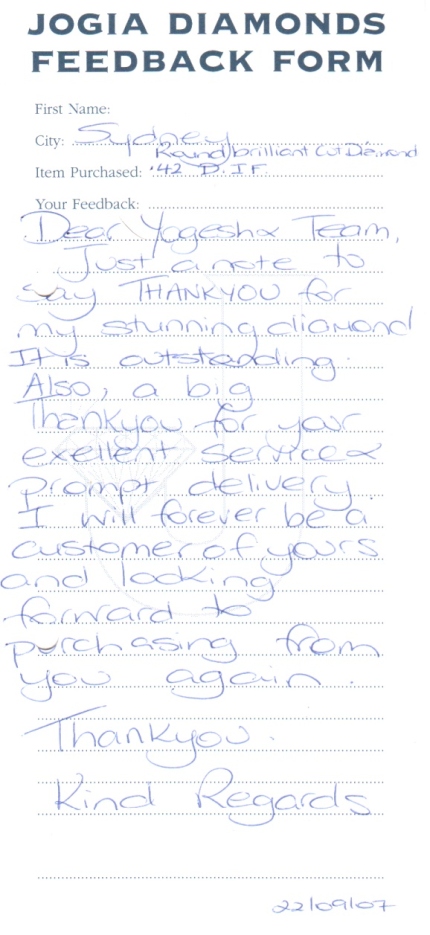 JOGIA DIAMONDS
FEEDBACK FORM
First Name:
City: Sydney
Round brilliant Cut Diamond
Item Purchased: .42 D. IF.
Your Feedback:
Dear Yogesh & Team,
Just a note to
say THANKYOU for
my stunning diamond
It is outstanding.
Also, a big
Thankyou for your
exellent service &
prompt delivery.
I will forever be a
customer of yours
and looking
forward to
purchasing from
you again.
Thankyou.
Kind Regards
22/09/07